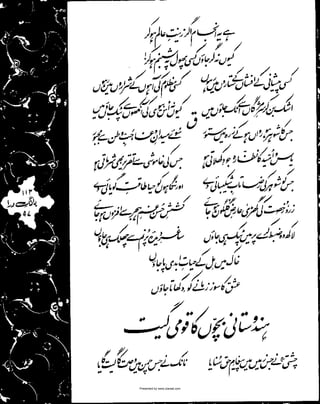 ہے یہ انجام اگر زینتِ عالم ہو کر
کیوں نہ گر جاؤں کسی پھول پہ شبنم ہو کر!
کسی پیشانی کے افشاں کے ستاروں میں رہوں کسی مظلوم کی آہوں کے شراروں میں رہوں
اشک بن کر سرِ مژگاں سے اٹک جاؤں میں کیوں نہ اس بیوی کی آنکھوں سے ٹپک جاؤں میں
ق
جس کا شوہر ہو رواں ہو کے زرہ میں مستور سوئے میدانِ وغا، حبِّ وطن سے مجبور
یاس و امید کا نظارہ جو دکھلاتی ہو جس کی خاموشی سے تقریر بھی شرماتی ہو
جس کو شوہر کی رضا تابِ شکیبائی دے اور نگاہوں کو حیا طاقتِ گویائی دے
زرد، رخصت کی گھڑی، عارضِ گلگوں ہو جائے کششِ حسن غمِ ہجر سے افزوں ہو جائے
لاکھ وہ ضبط کرے پر میں ٹپک ہی جاؤں ساغرِ دیدۂ پرنم سے چھلک ہی جاؤں
خاک میں مل کے حیاتِ ابدی پا جاؤں
عشق کا سوز زمانے کو دکھاتا جاؤں
ہندوستانی بچوں کا قومی گیت
چشتی نے جس زمیں میں پیغامِ حق سنایا نانک نے جس چمن میں وحدت کا گیت گایا
۱۱۳
بانگِ درا
۸۷